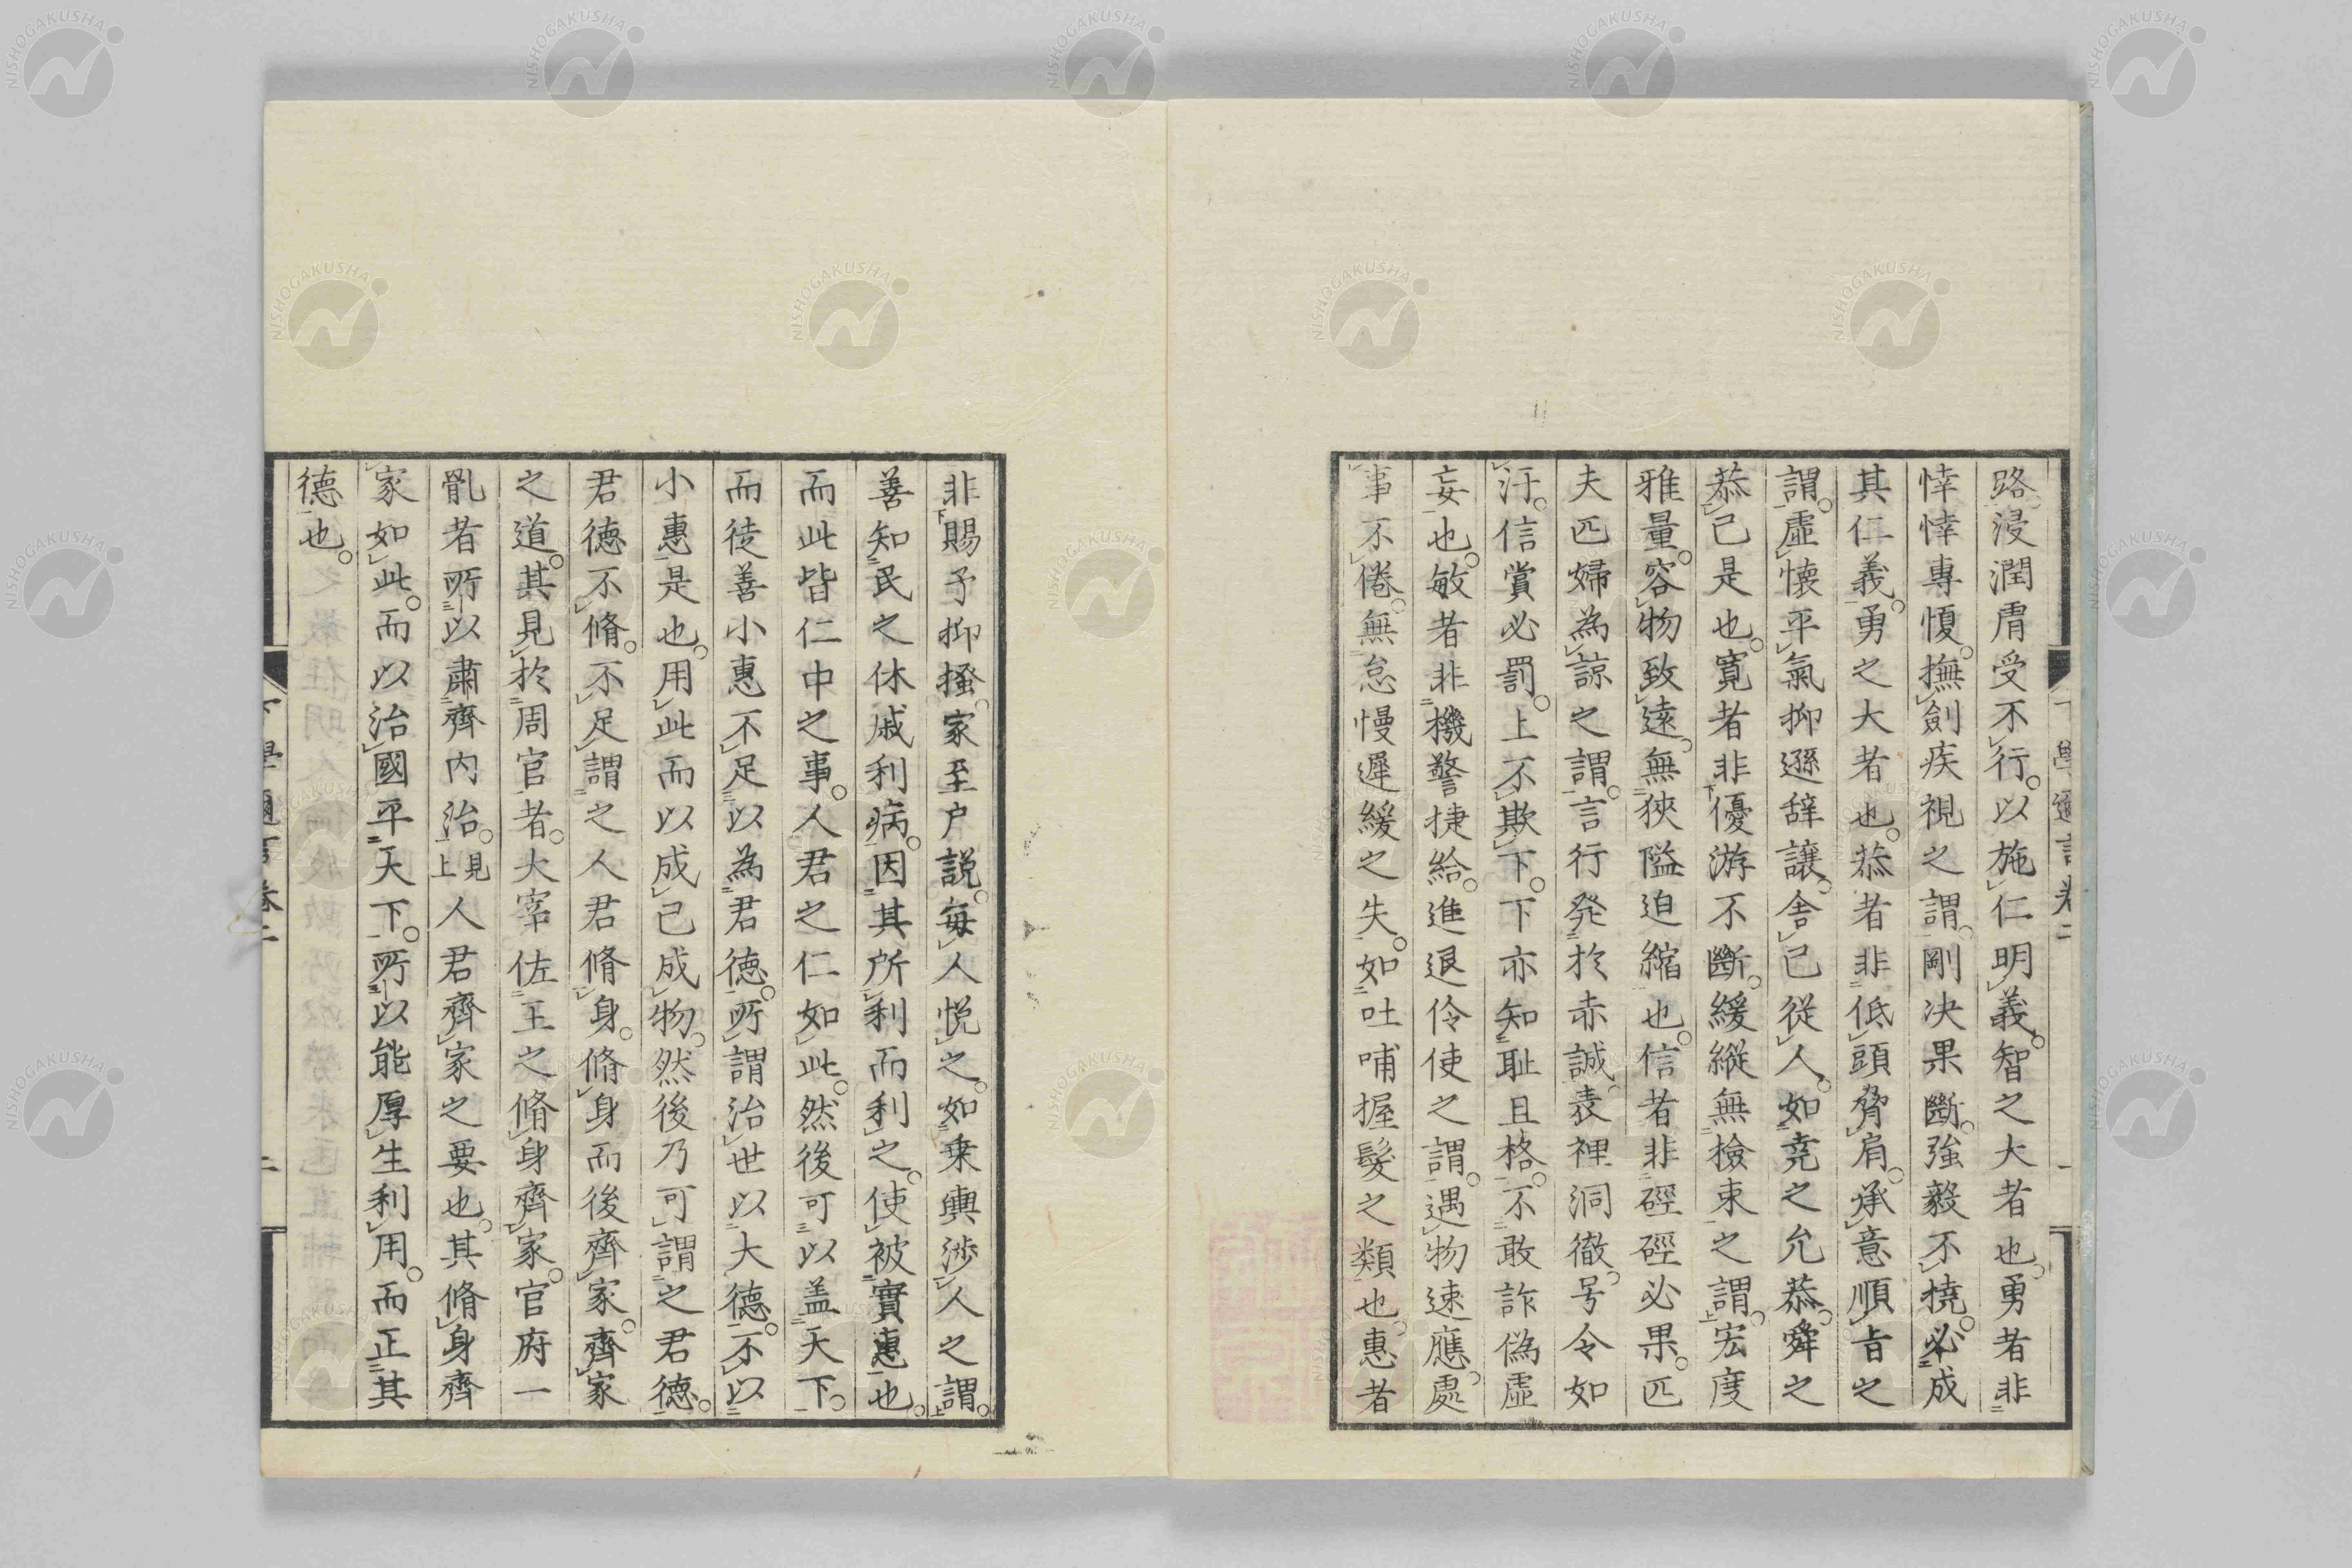 路浸潤膚受不行。以施仁明義。智之大者也。勇者非
悻悻專愎。撫劍疾視之謂。剛决果斷。強毅不撓。必成
其仁義。勇之大者也。恭者非低頭脅肩。承意順㫖之
謂。虛懐平氣抑遜辞讓。舎己從人。如堯之允恭。舜之
恭己是也。寛者非優游不斷。緩縱無撿束之謂。宏度
雅量。容物致遠。無狹隘迫縮也。信者非硜硜必果。匹
夫匹婦為諒之謂。言行発於赤誠。表裡洞徹。号令如
汗。信賞必罰。上不欺下。下亦知耻且格。不敢詐偽虛
妄也。敏者非機警捷給。進退伶使之謂。遇物速應。處
事不倦。無怠慢遲緩之失。如吐哺握髮之類也。惠者
非賜予抑搔。家至户説。毎人悦之。如乗輿渉人之謂。
善知民之休戚利病。因其所利而利之。使被實惠也。
而此皆仁中之事。人君之仁如此。然後可以盖天下。
而徒善小惠不足以為君德。所謂治世以大德。不以
小惠是也。用此而以成己成物。然後乃可謂之君德。
君德不脩。不足謂之人君脩身。脩身而後齊家。齊家
之道。其見於周官者。大宰佐王之脩身齊家。官府一
亂者所以肅齊内治。見上人君齊家之要也。其脩身齊
家如此。而以治國平天下。所以能厚生利用。而正其
德也。